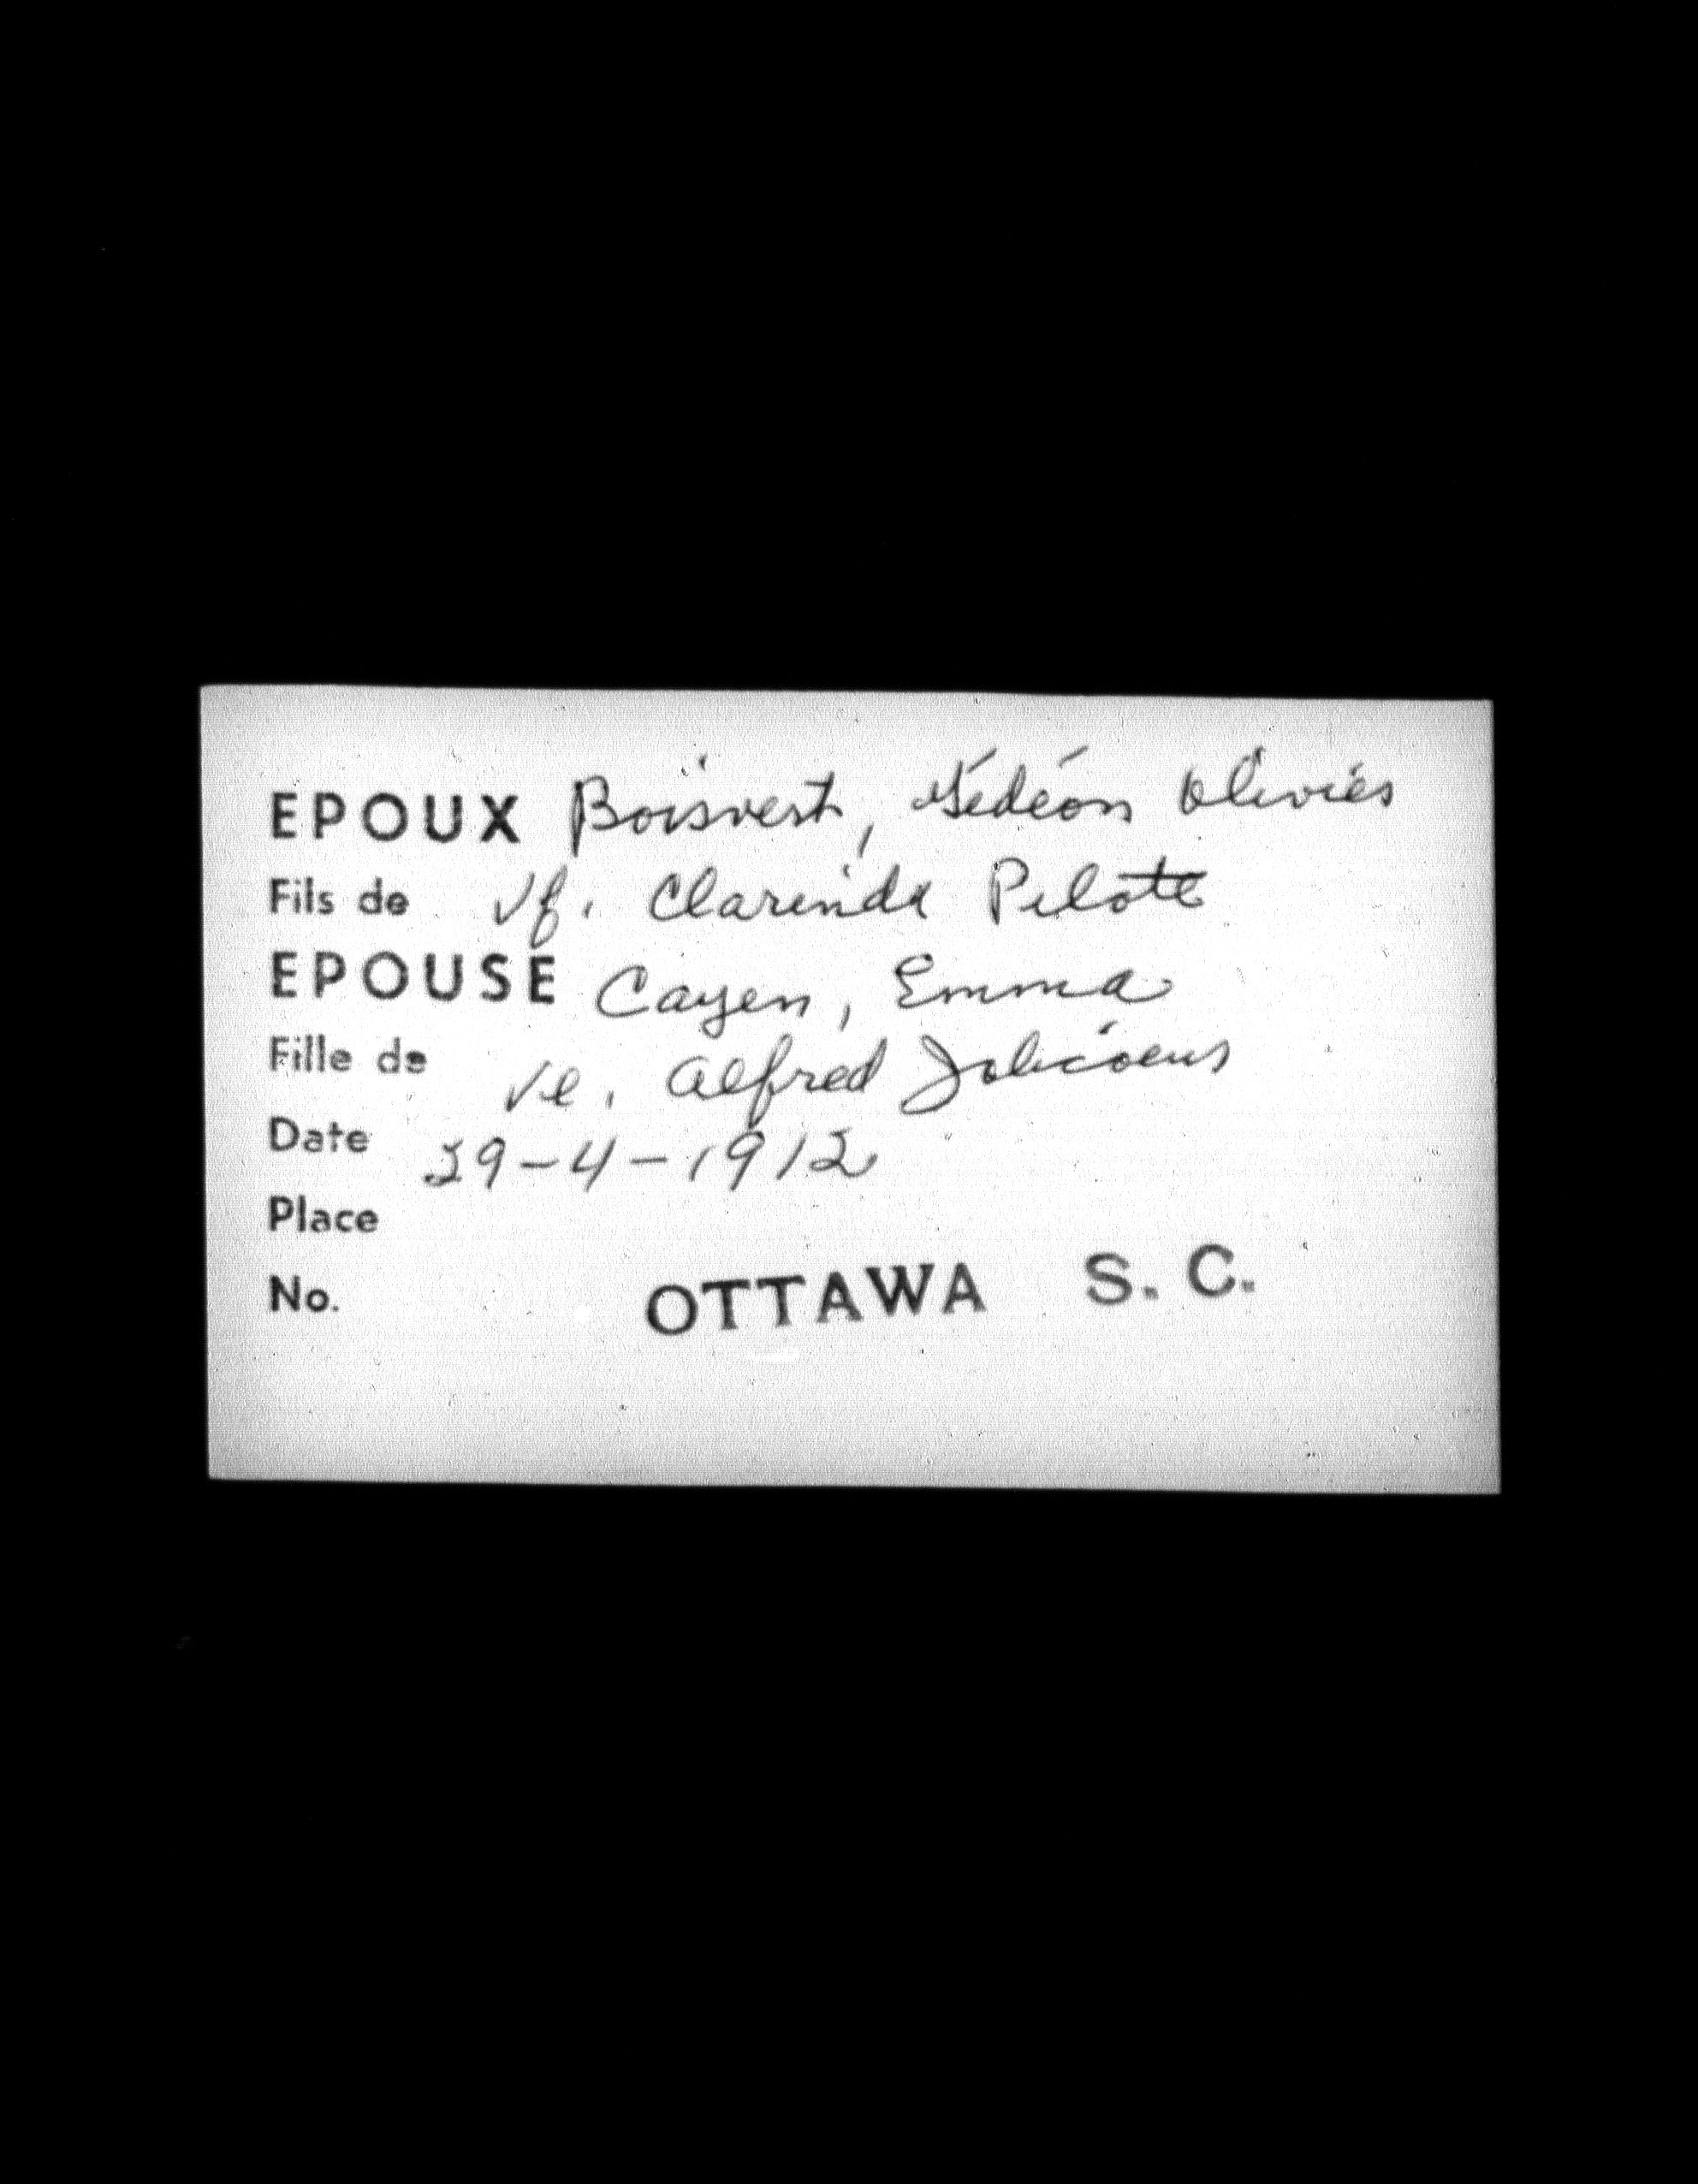 EPOUX Boisvert, Gédéon Olivier
Fils de Vf. Clarinda Pilote
EPOUSE Cayen, Emma
Fille de Ve. Alfred Jolicoeur
Date 29-4-1912
Place
No. OTTAWA S. C.